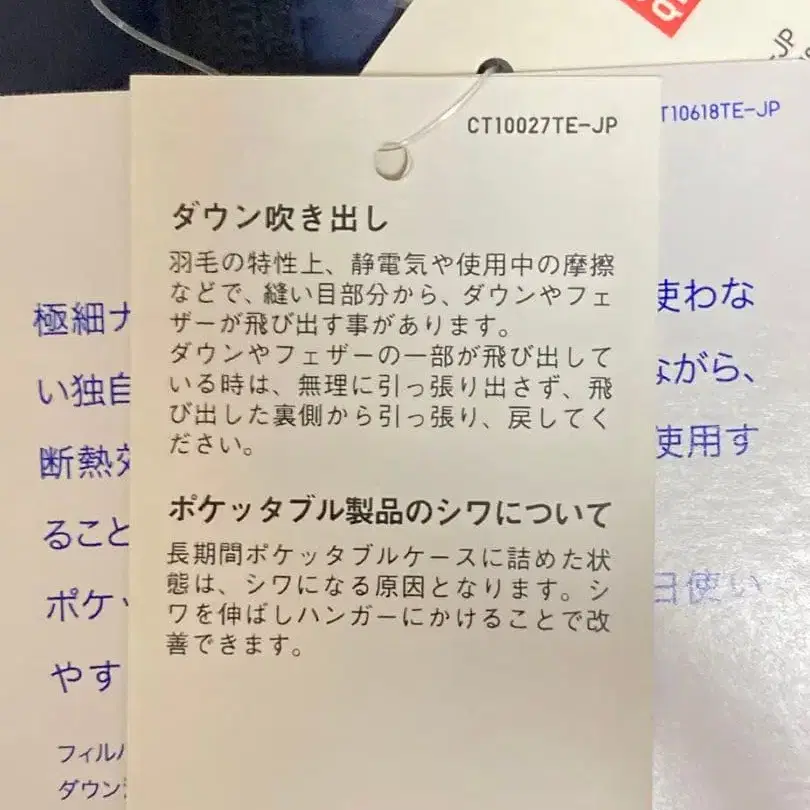 CT10027TE-JP
T10618TE-JP
-JP
ダウン吹き出し
羽毛の特性上、静電気や使用中の摩擦
などで、縫い目部分から、ダウンやフェ
ザーが飛び出す事があります。
ダウンやフェザーの一部が飛び出して
いる時は、無理に引っ張り出さず、飛
び出した裏側から引っ張り、戻してく
ださい。
ポケッタブル製品のシワについて
長期間ポケッタブルケースに詰めた状
態は、シワになる原因となります。シ
ワを伸ばしハンガーにかけることで改
善できます。
極細ナ
使わな
い独自
ながら、
断熱交
使用す
ること
ポケッ
日使い
やす
フィルパ
ダウン